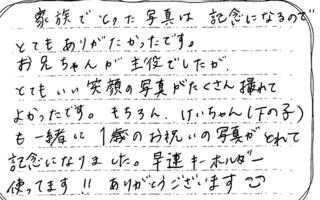 家族でとった写真は 記念になるので
とてもありがたかったです。
お兄ちゃんが主役でしたが、
とてもいい笑顔の写真がたくさん撮れて
よかったです。もちろん、けいちゃん(下の子)
も一緒に1歳のお祝いの写真がとれて
記念になりました。早速キーホルダー
使ってます!! ありがとうございます